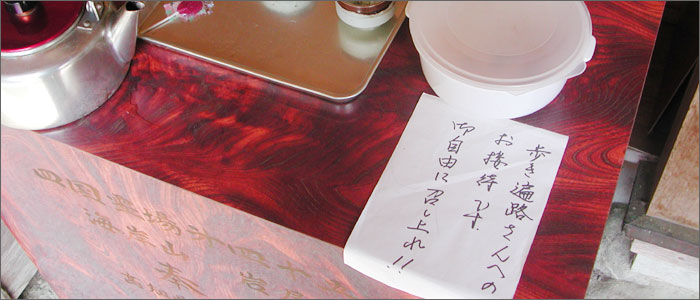 歩き遍路さんへの
お接待です。
御自由に召し上れ!!
四国霊場第四十五
海岸山
岩屋